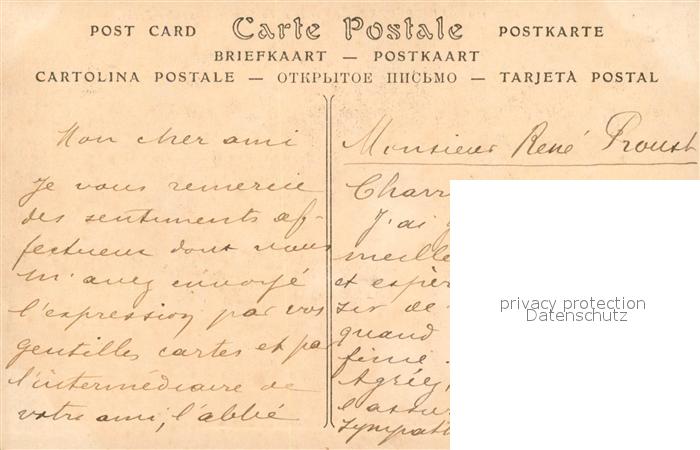 POST CARD Carte Postale POSTKARTE
BRIEFKAART — POSTKAART
CARTOLINA POSTALE — ОТКРЫТОЕ ПИСЬМО — TARJETA POSTAL
Mon cher ami
Je vous remercie
des sentiments af-
fectueux dont vous
m'avez envoyé
l'expression par vos
gentilles cartes et pa
l'intermédiaire de
votre ami, l'abbé
Monsieur René Proust
Charr
J'ai
meille
et espèr
sir de
quand
finie.
Agréez,
l'assur
sympat
privacy protection
Datenschutz